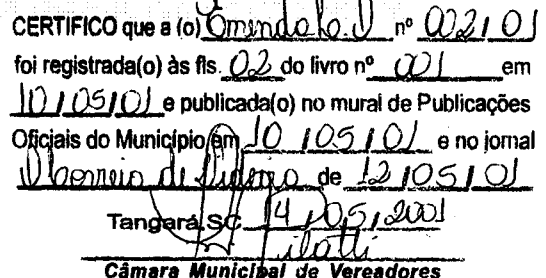 CERTIFICO que a (o) Emenda L.O. nº 002/01
foi registrada(o) às fls. 02 do livro nº 001 em
10/05/01 e publicada(o) no mural de Publicações
Oficiais do Município em 10/05/01 e no jornal
de 12/05/01
Tangará SC 14/05/2001
Câmara Municipal de Vereadores